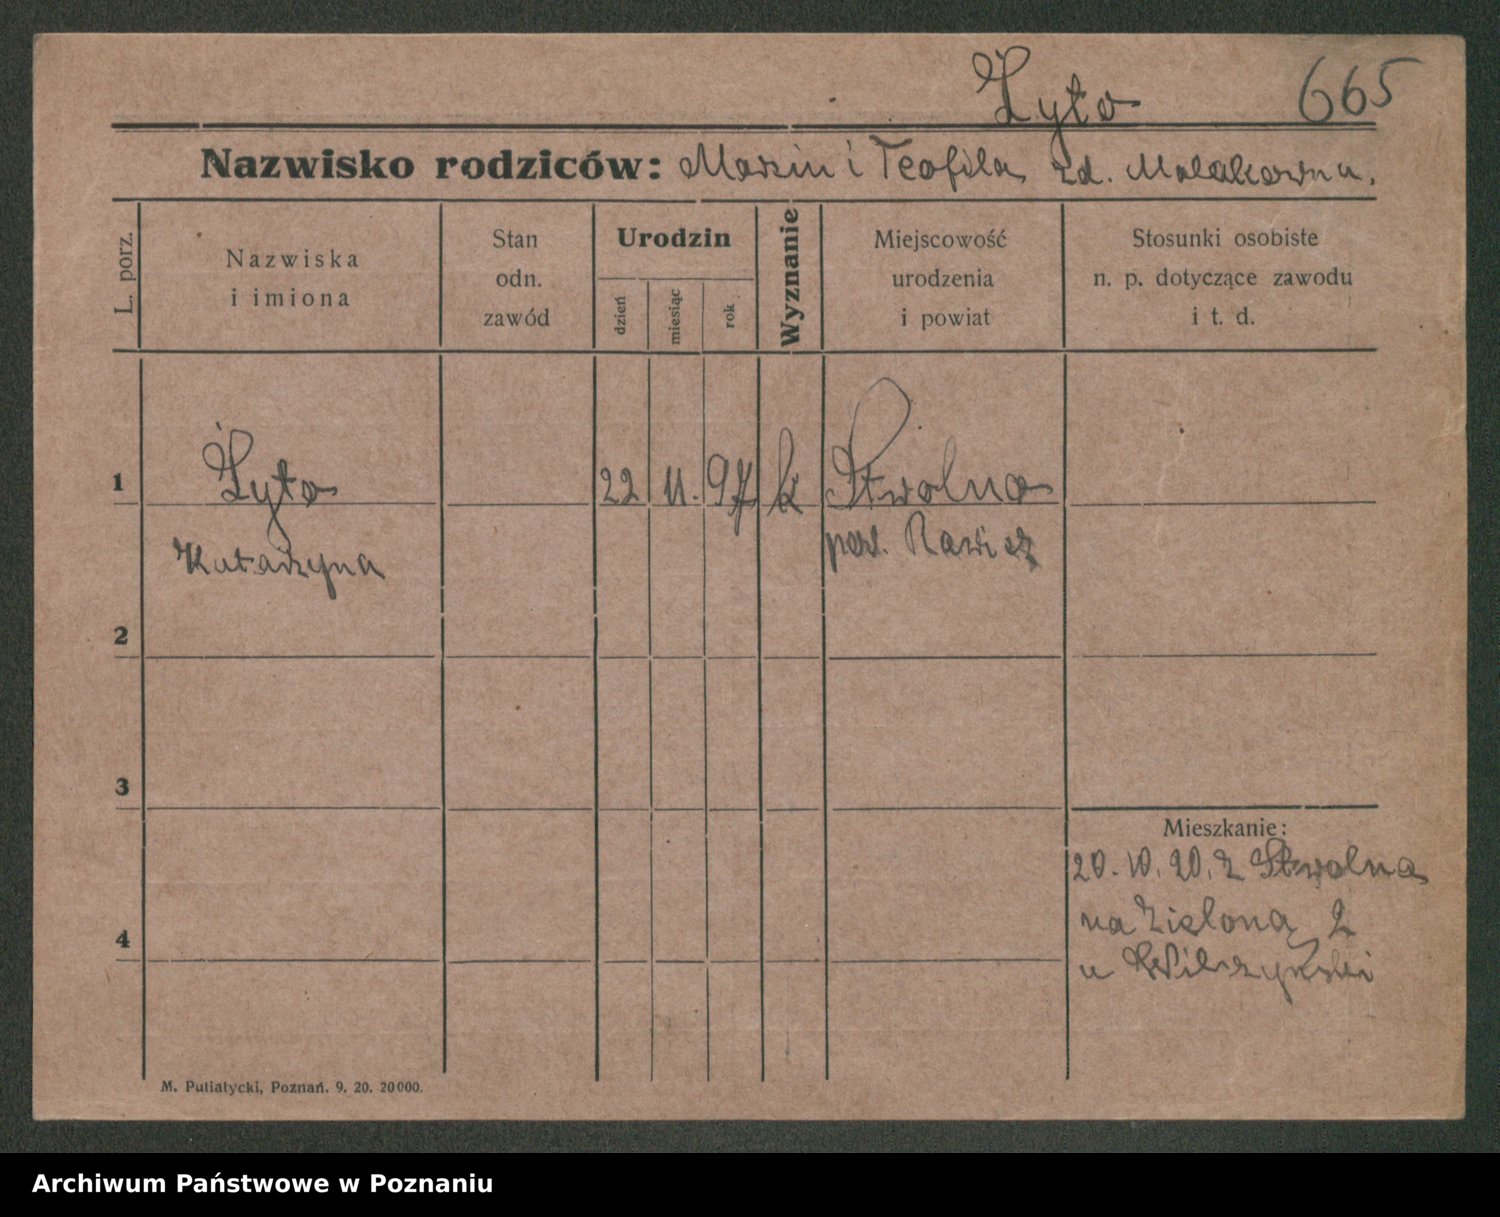 Żyto 665
Nazwisko rodziców: Marcin i Teofila zd. Malakowna.
L. porz.
Nazwiska
i imiona
Stan
odn.
zawód
Urodzin
dzień
miesiąc
rok
Wyznanie
Miejscowość
urodzenia
i powiat
Stosunki osobiste
n. p. dotyczące zawodu
i t. d.
1 Żyto 22 11. 97 k Stwolno
Katarzyna pow. Rawicz
2
3
Mieszkanie:
20. 10. 20. z Stwolna
na Zieloną 2
4
u Wilczyński
M. Putiatycki, Poznań. 9. 20. 20000.
Archiwum Państwowe w Poznaniu